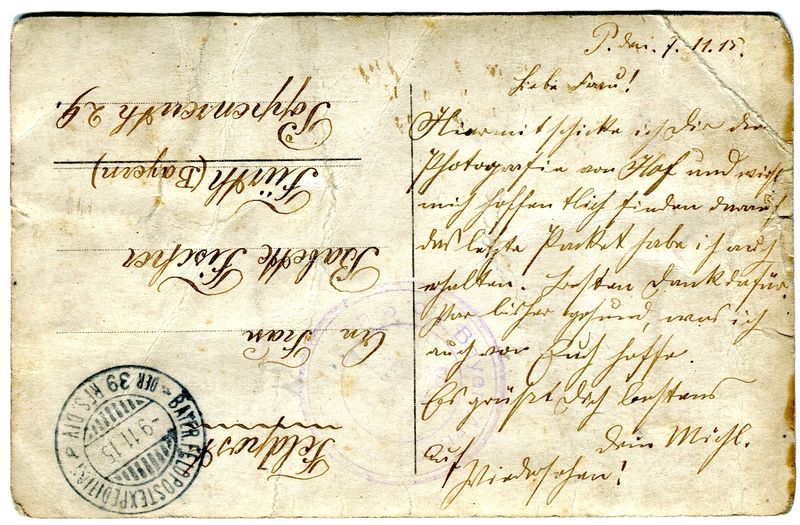 P. den 7. 11. 15.
Liebe Frau!
Hiermit schicke ich Dir die
Photografie von Hof und wirst
mich hoffentlich finden darauf
das letzte Packet habe ich auch
erhalten. Besten Dank dafür.
bisher gesund, was ich
auch von Euch hoffe.
Es grüßt Dich bestens
dein Michl.
Auf
Wiedersehen!
Feldpost
An Frau
Babette Fischer
Fürth (Bayern)
Poppenreuth 29.
BAYER. FELDPOSTEXPEDITION
DER 39 RES. DIV.
-9.11.15